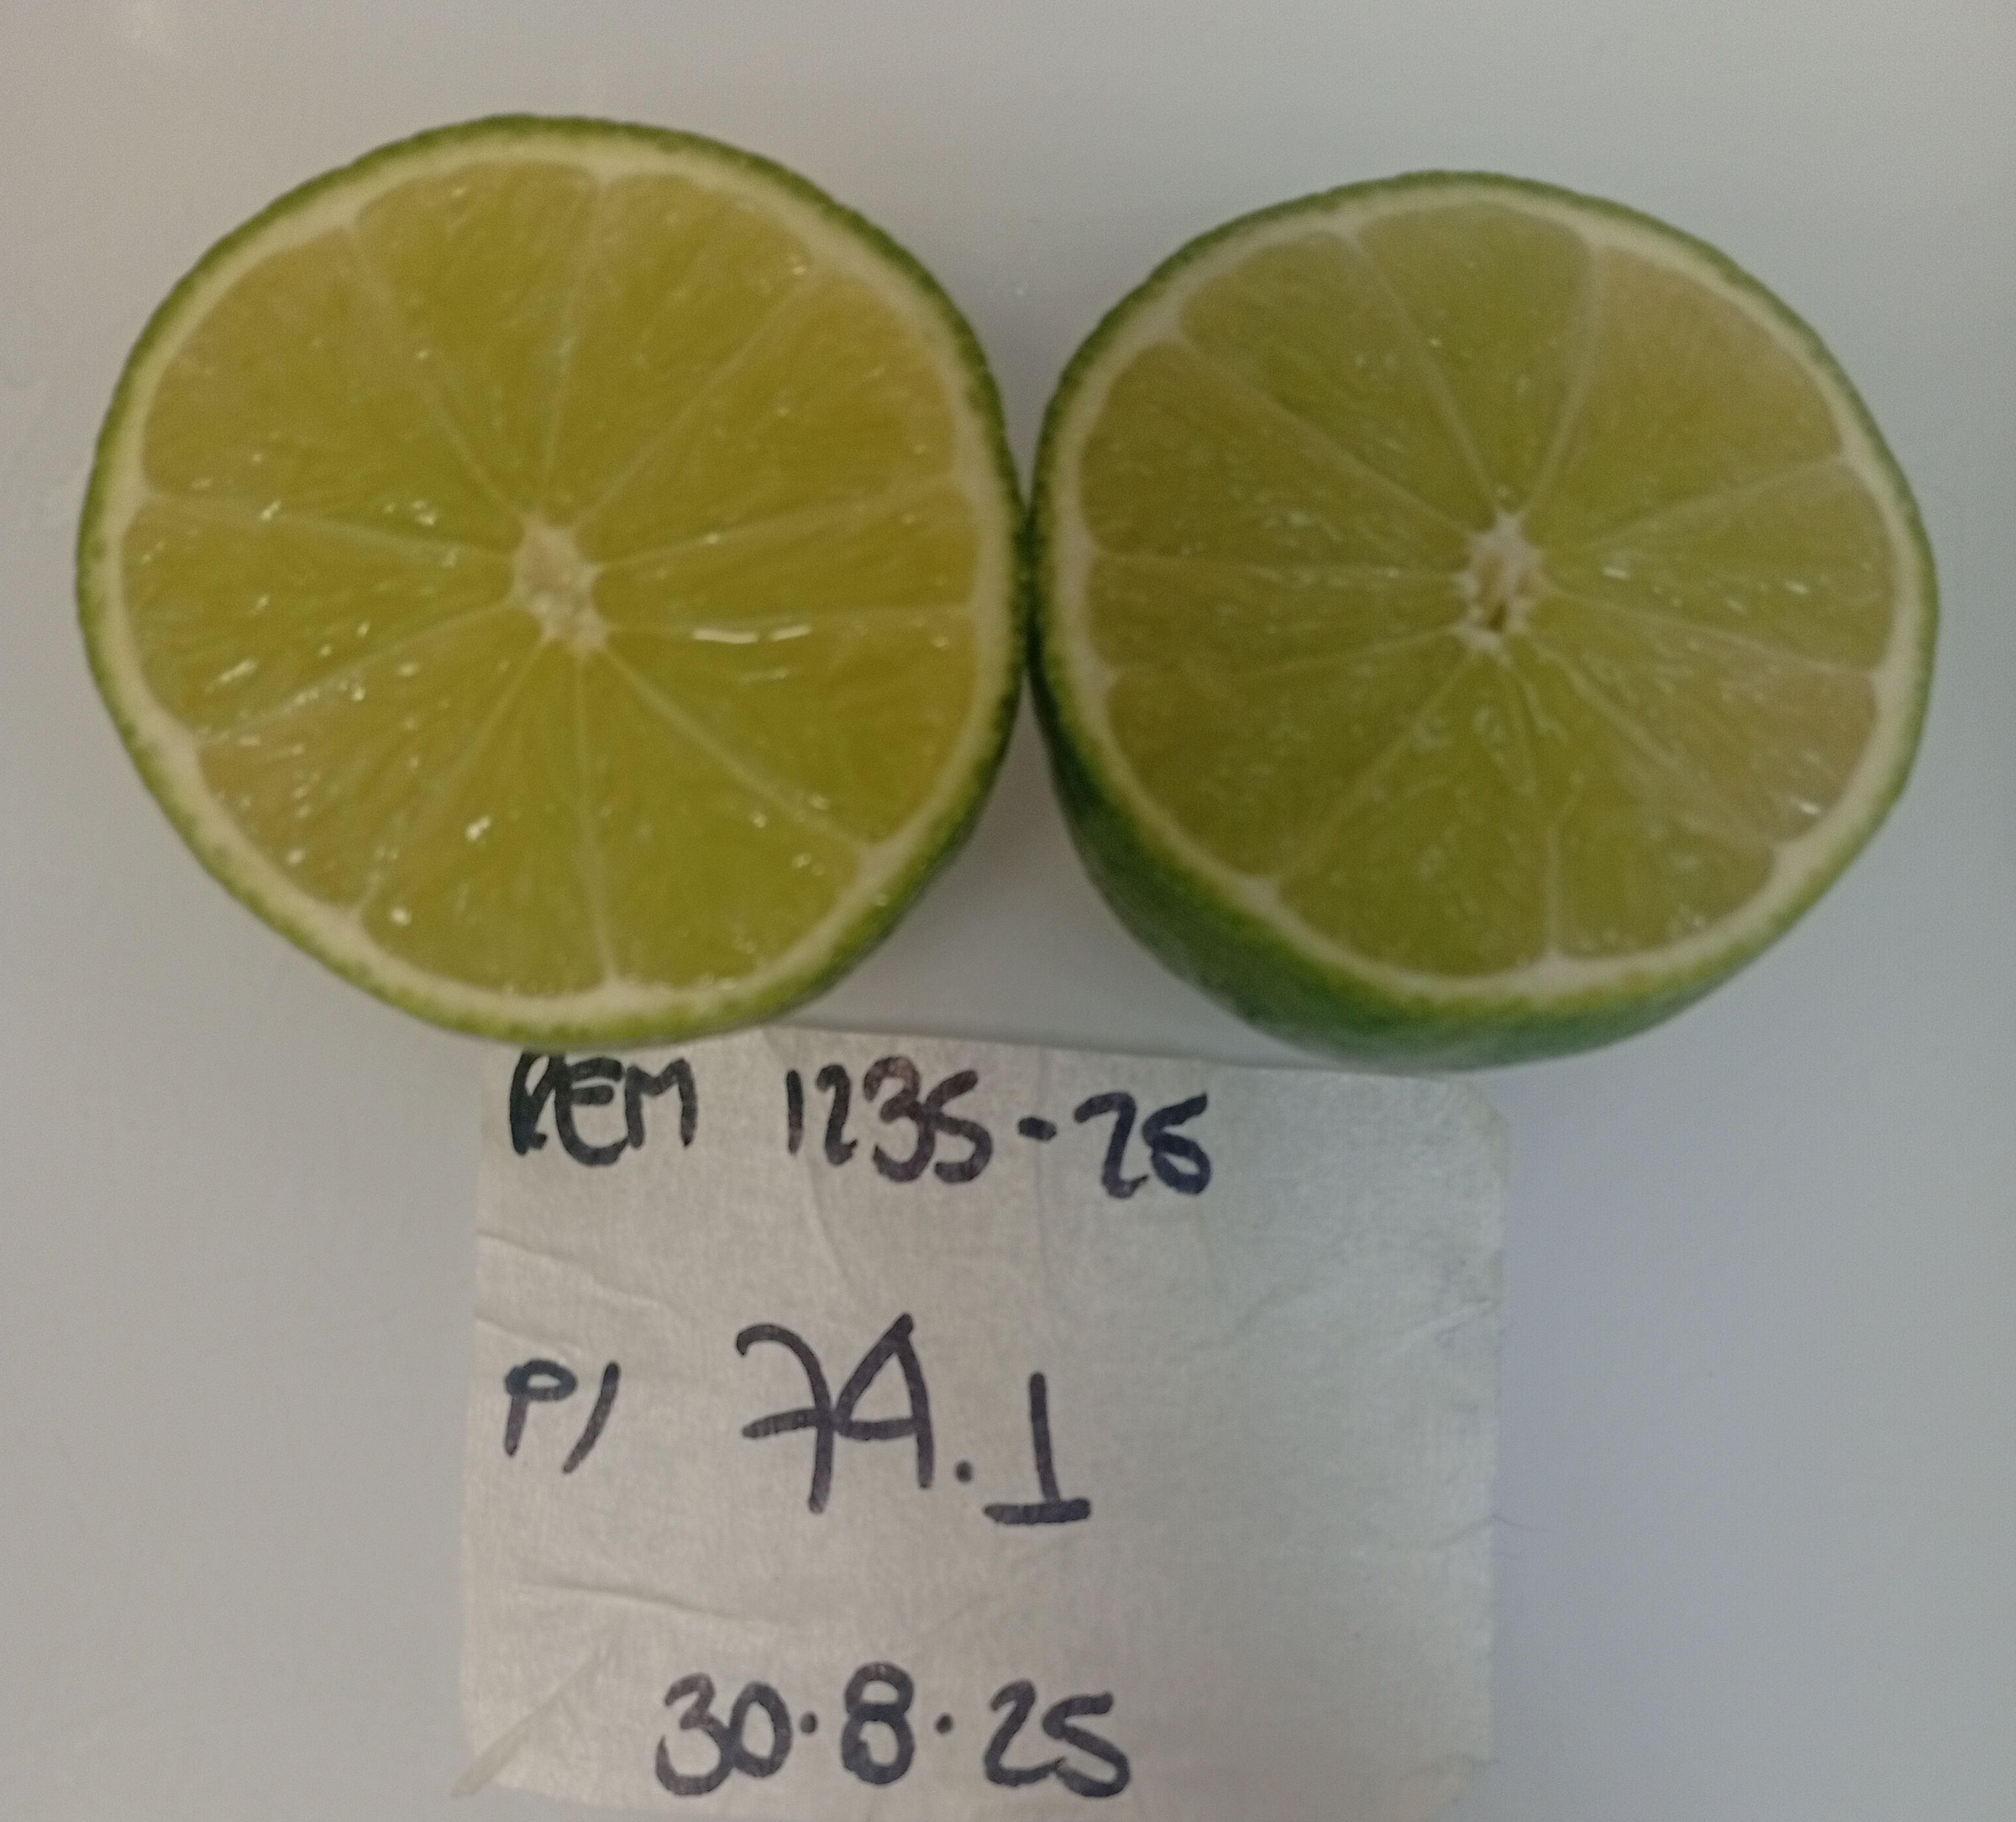 REM 1235-25
P/ 74.1
30.8.25